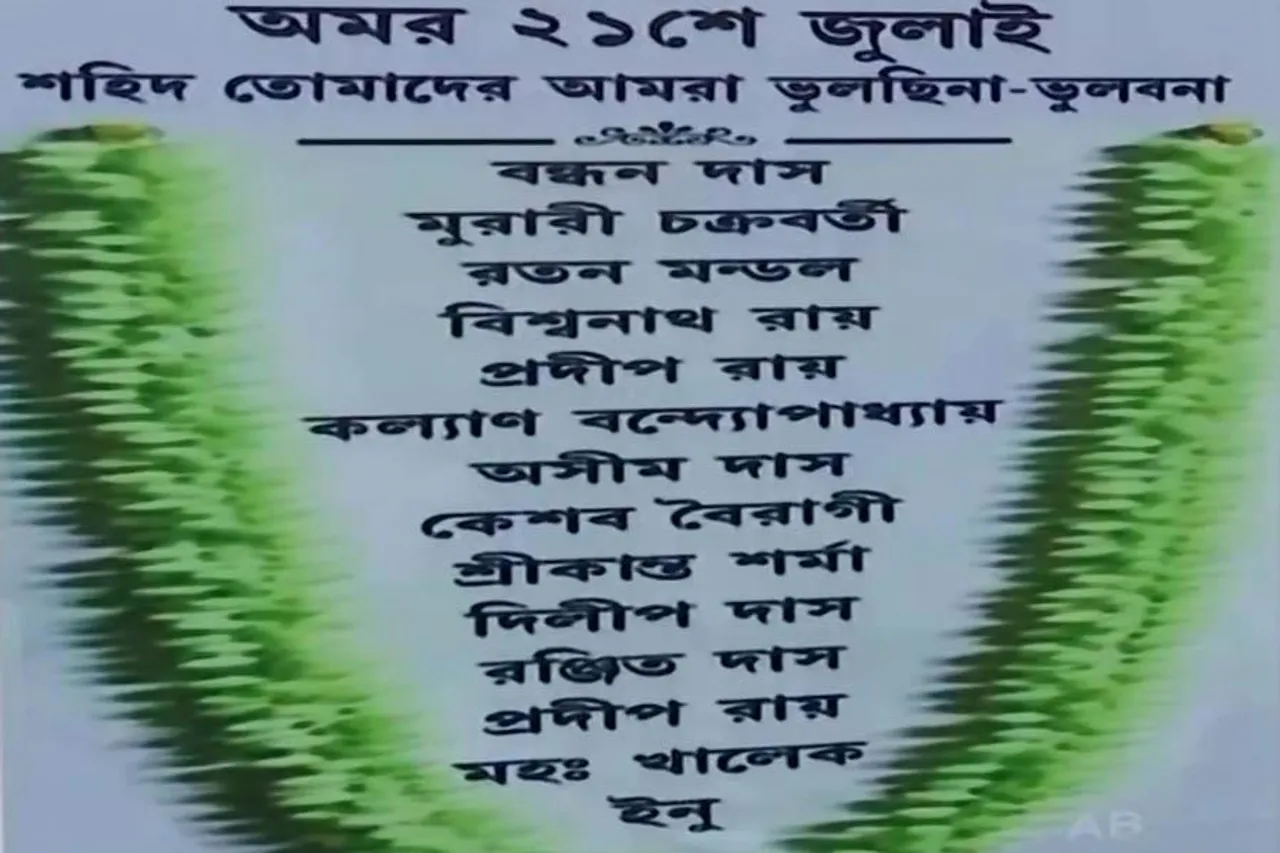 অমর ২১শে জুলাই
শহিদ তোমাদের আমরা ভুলছিনা-ভুলবনা
বন্ধন দাস
মুরারী চক্রবর্তী
রতন মন্ডল
বিশ্বনাথ রায়
প্রদীপ রায়
কল্যাণ বন্দ্যোপাধ্যায়
অসীম দাস
কেশব বৈরাগী
শ্রীকান্ত শর্মা
দিলীপ দাস
রঞ্জিত দাস
প্রদীপ রায়
মহঃ খালেক
ইনু
AB